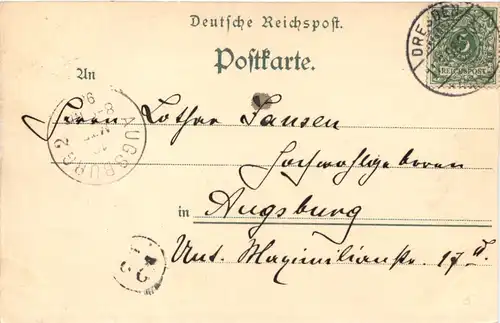 Deutsche Reichspost.
Postkarte.
DRESDEN
REICHSPOST
An
Herrn Lothar Jansen
Hochwohlgeboren
in Augsburg
Unt. Maximilianstr. 17 II.
AUGSBURG 2
23